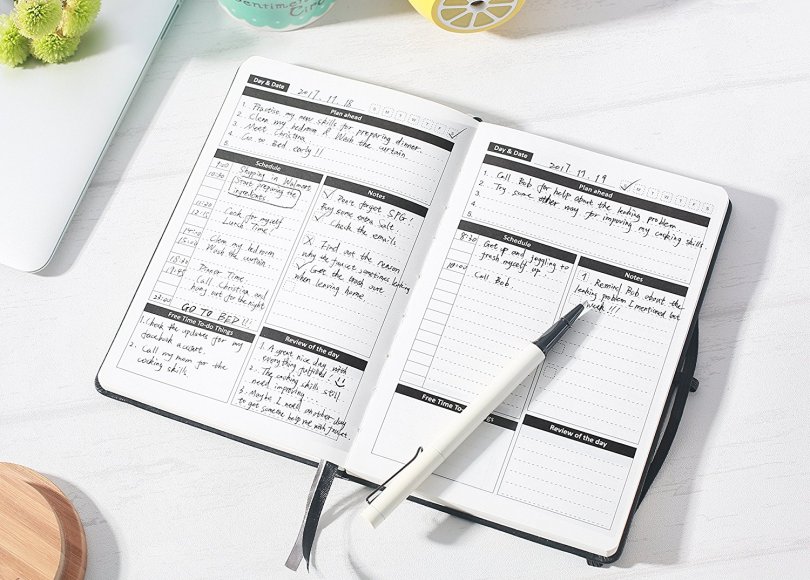 Sentimental
Circ
Day & Date
2017. 11. 18
S M T W T F S
Plan ahead
1. Practise my new skills for preparing dinner.
2. Clean my bedroom & Wash the curtain.
3. Meet Christina
4. Go to Bed early!!
5
Schedule
9:00 Shopping in Walmart
10:30 Start preparing the
ingredients
11:30 Cook for myself
12:15 Lunch Time
Clean my bedroom
15:00 Wash the curtain
18:30 Dinner Time
Call Christina and
hang out for the night
22:00
GO TO BED!!
Free Time To-do Things
1. Check the updates for my
facebook account.
2. Call my mom for the
cooking skills
Notes
✓ Don't forget SPG!
Buy some extra salt
✓ Check the emails
X Find out the reason
why the faucet sometimes leaking
✓ Get the trash out
when leaving home
Review of the day
1. A great nice day with
everything fulfilled!
2. The cooking skills still
need improving...
3. Maybe I need another day
to get someone help me with faucet.
Day & Date
2017. 11. 19
M T W T F S
Plan ahead
1. Call Bob for help about the leaking problem
2. Try some other way for improving my cooking skills
3.
4.
5.
Schedule
8:30 Get up and jogging to
fresh myself up
10:00 Call Bob
Free Time To-
ngs
Notes
1. Remind Bob about the
leaking problem I mentioned last
week!!!
Review of the day